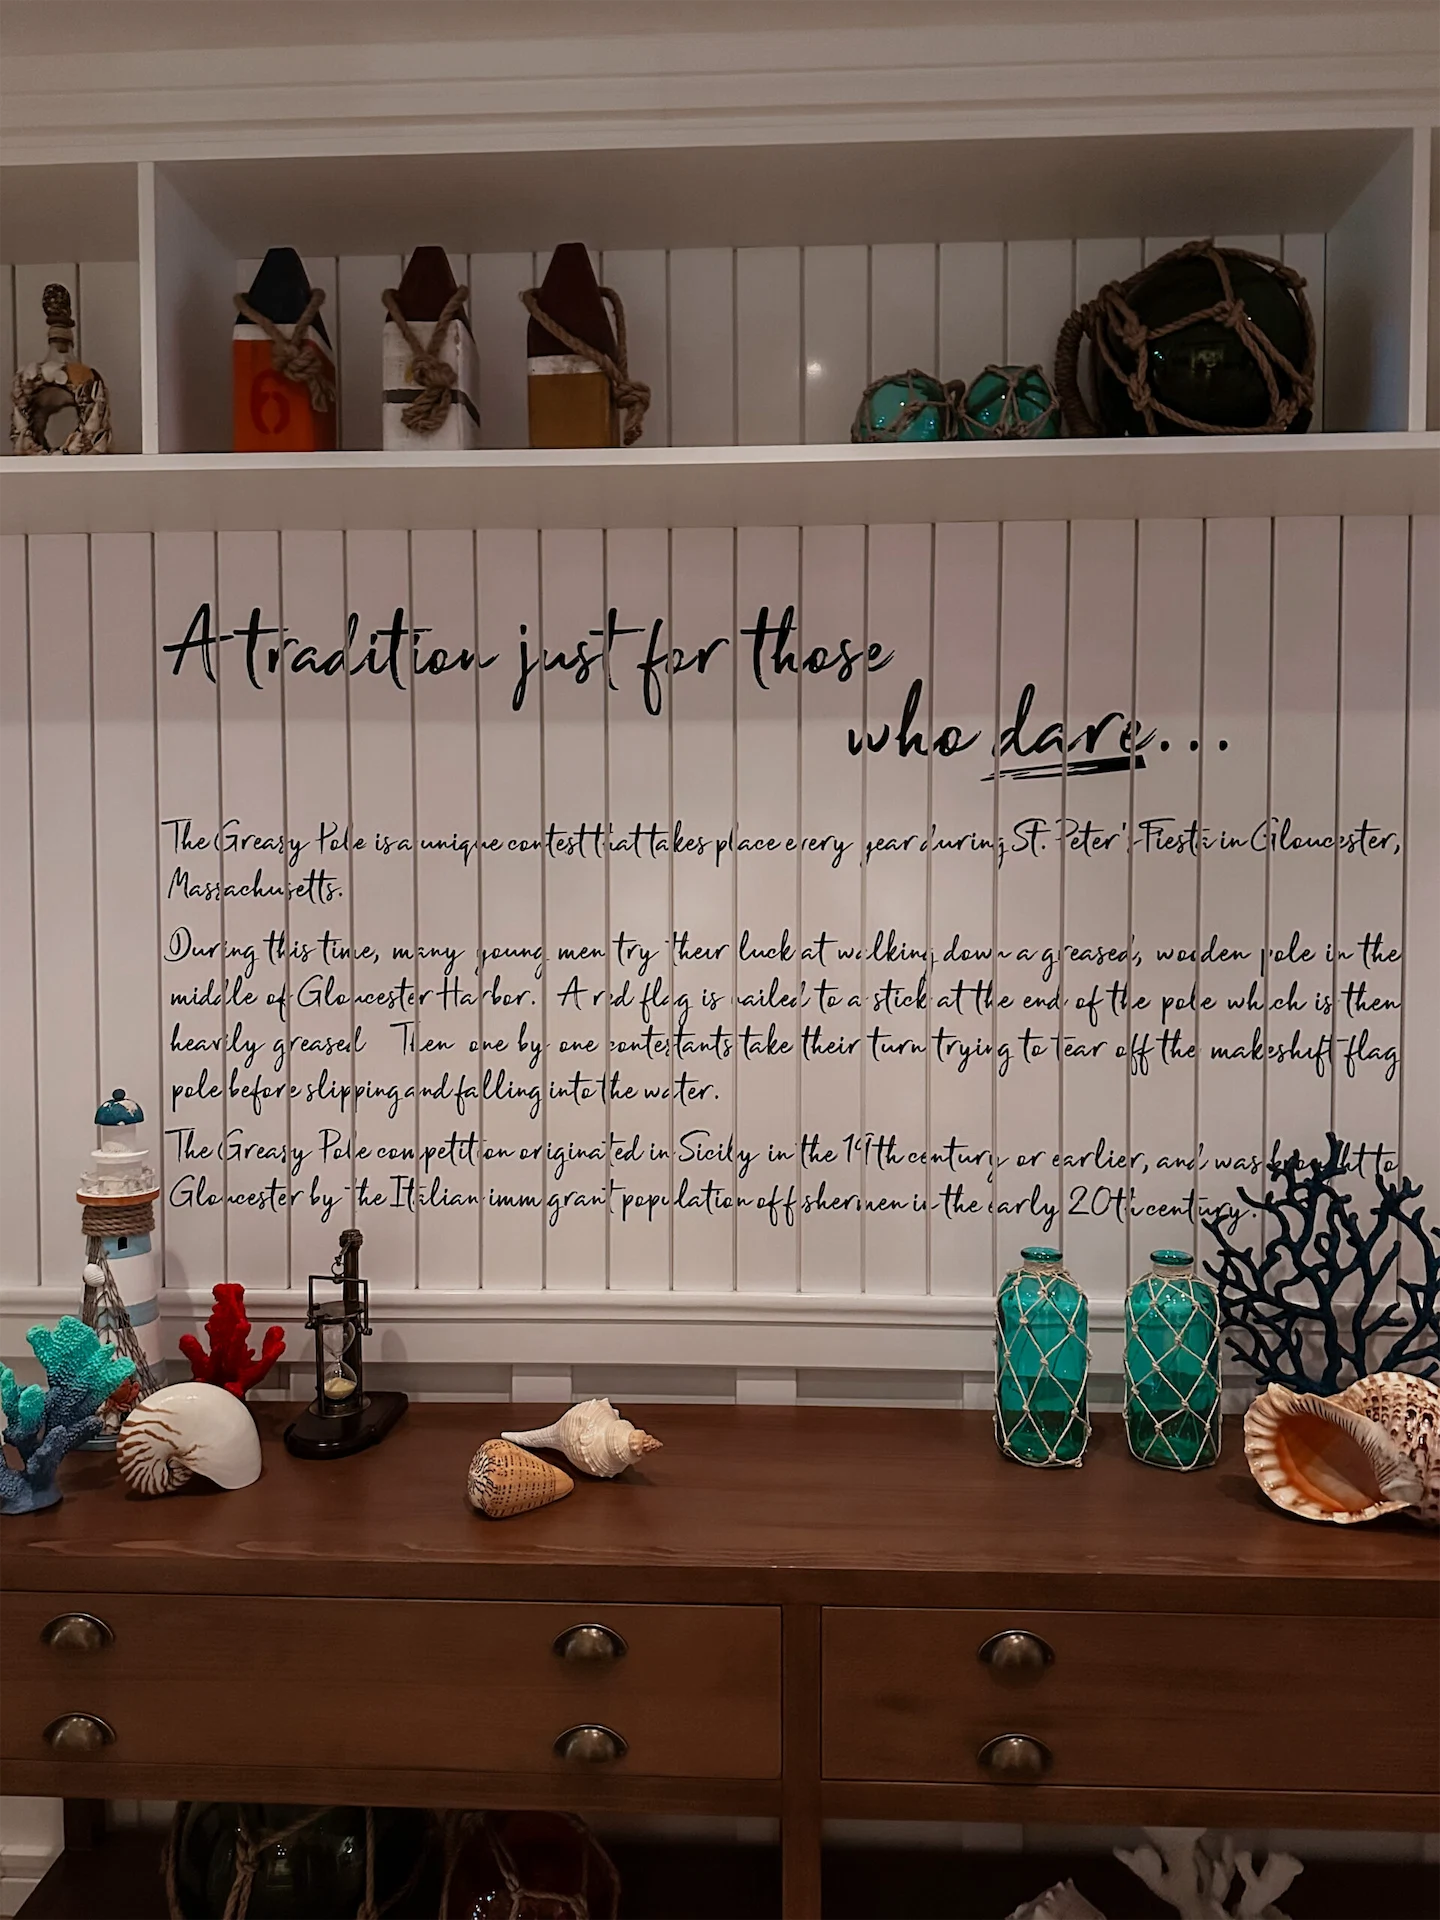 6
A tradition just for those
who dare...
The Greasy Pole is a unique contest that takes place every year during St. Peter's Fiesta in Gloucester,
Massachusetts.
During this time, many young men try their luck at walking down a greased, wooden pole in the
middle of Gloucester Harbor. A red flag is nailed to a stick at the end of the pole which is then
heavily greased Then one by one contestants take their turn trying to tear off the makeshift flag
pole before slipping and falling into the water.
The Greasy Pole competition originated in Sicily in the 19th century or earlier, and was brought to
Gloucester by the Italian immigrant population of fishermen in the early 20th century.